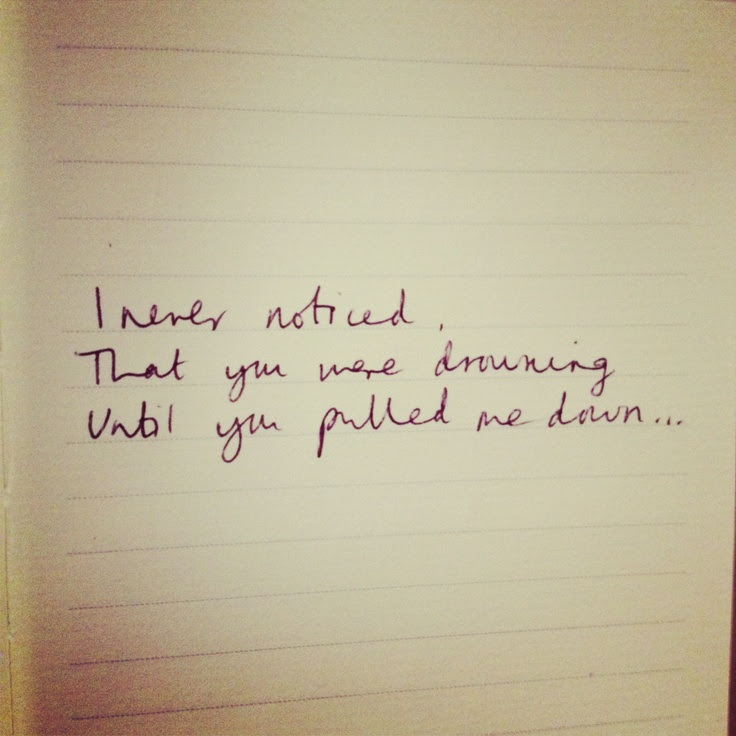 I never noticed,
That you were drowning
Until you pulled me down...